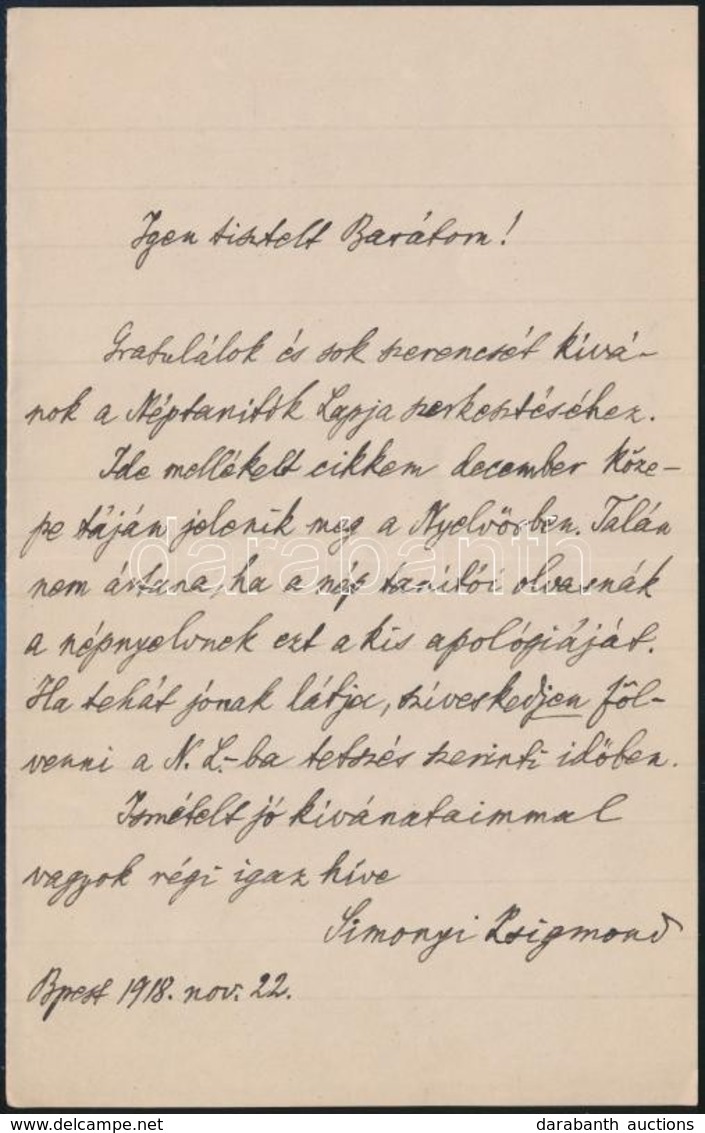 Igen tisztelt Barátom!
Gratulálok és sok szerencsét kívá-
nok a Néptanitók Lapja szerkesztéséhez.
Ide mellékelt cikkem december köze-
pe táján jelenik meg a Nyelvőrben. Talán
nem ártana, ha a nép tanítói olvasnák
a népnyelvnek ezt a kis apológiáját.
Ha tehát jónak látja, sziveskedjen föl-
venni a N. L.-ba tetszés szerinti időben.
Ismételt jó kivánataimmal
vagyok régi igaz híve
Simonyi Zsigmond
Bpest 1918. nov. 22.
darabanth
darabanth auctions